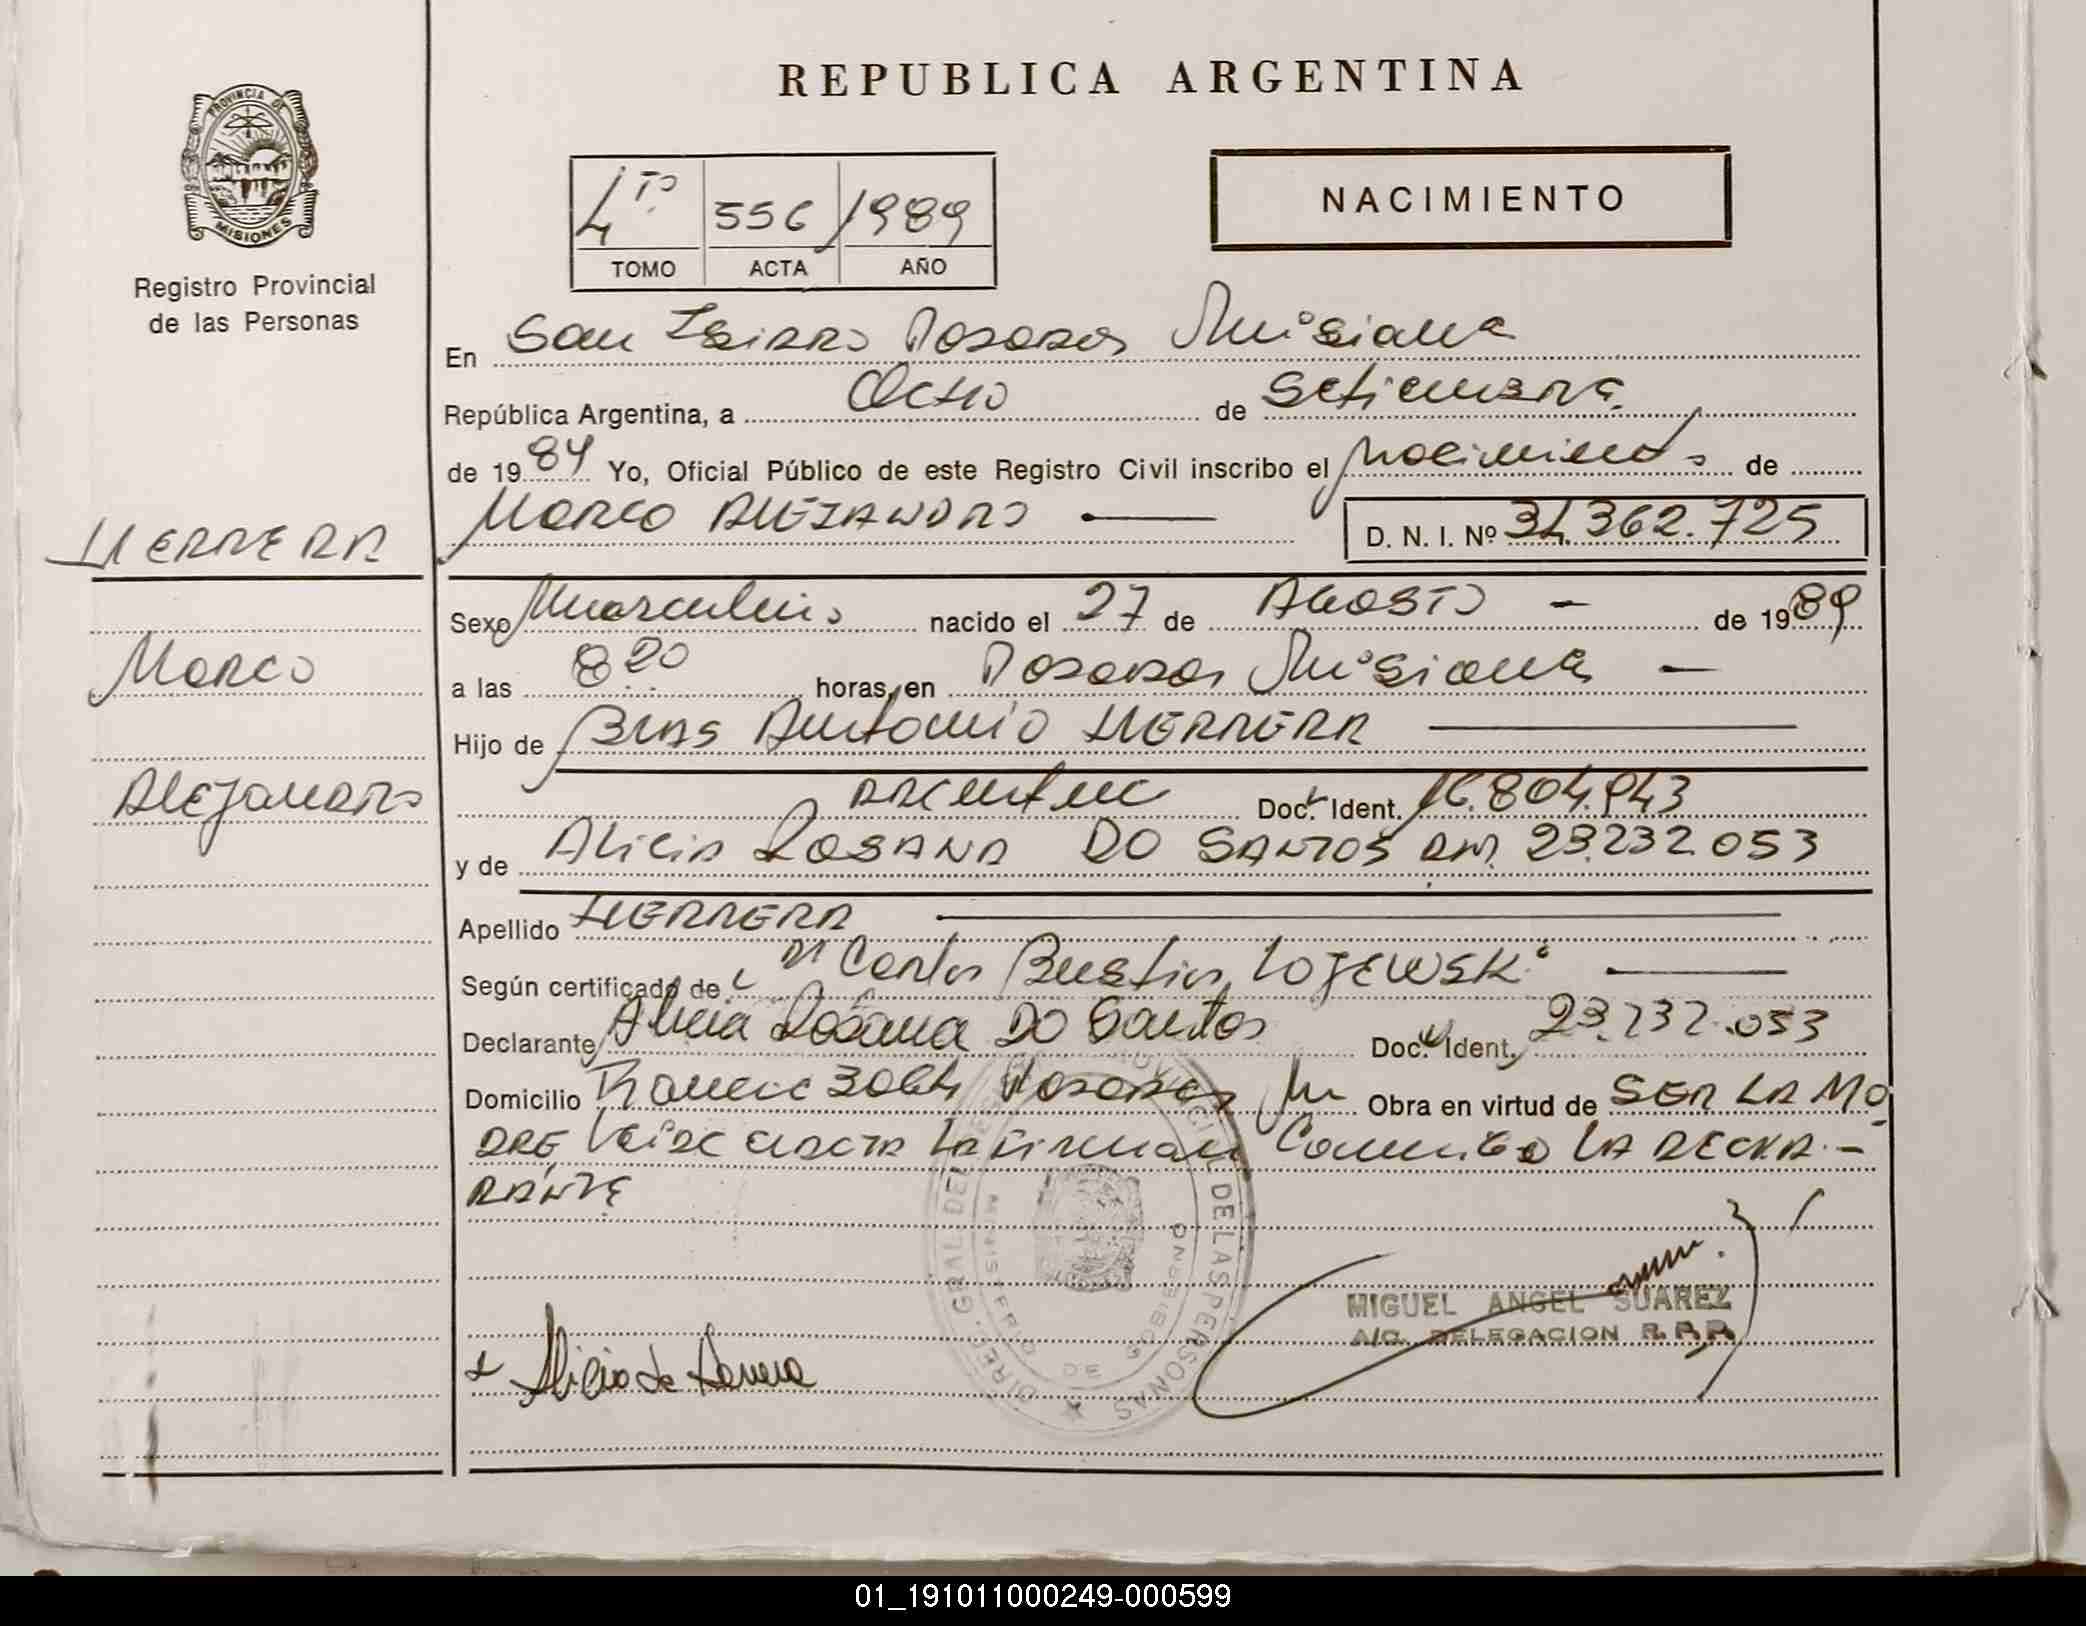 REPUBLICA ARGENTINA
PROVINCIA DE
MISIONES
Registro Provincial
de las Personas
4to. 556 1989
TOMO ACTA AÑO
NACIMIENTO
En San Isidro Posadas Misiones
República Argentina, a Ocho de Setiembre
de 1989 Yo, Oficial Público de este Registro Civil inscribo el nacimiento de
Marco ALEJANDRO
D. N. I. Nº 34.362.725
HERRERA
Marco
Alejandro
Sexo Masculino nacido el 27 de AGOSTO - de 1989
a las 8 20 horas, en Posadas Misiones -
Hijo de BLAS Antonio HERRERA
argentino Doc. Ident. 16.804.943
y de Alicia ROSANA DO SANTOS arg. 23.232.053
Apellido HERRERA
Según certificado de Dr Carlos Bustos LOJEWSKI
Declarante Alicia Rosana DO Santos Doc. Ident. 23.232.053
Domicilio 3064 Posadas Mis Obra en virtud de SER LA MA
DRE Leida acta la firman Conmigo LA DECLA -
RANTE
DIREC. GRAL. DEL REG. PROVINCIAL DE LAS PERSONAS
MINISTERIO DE GOBIERNO
MIGUEL ANGEL SUAREZ
A/C. DELEGACION R.P.P.
x Alicia de Herrera
01_191011000249-000599